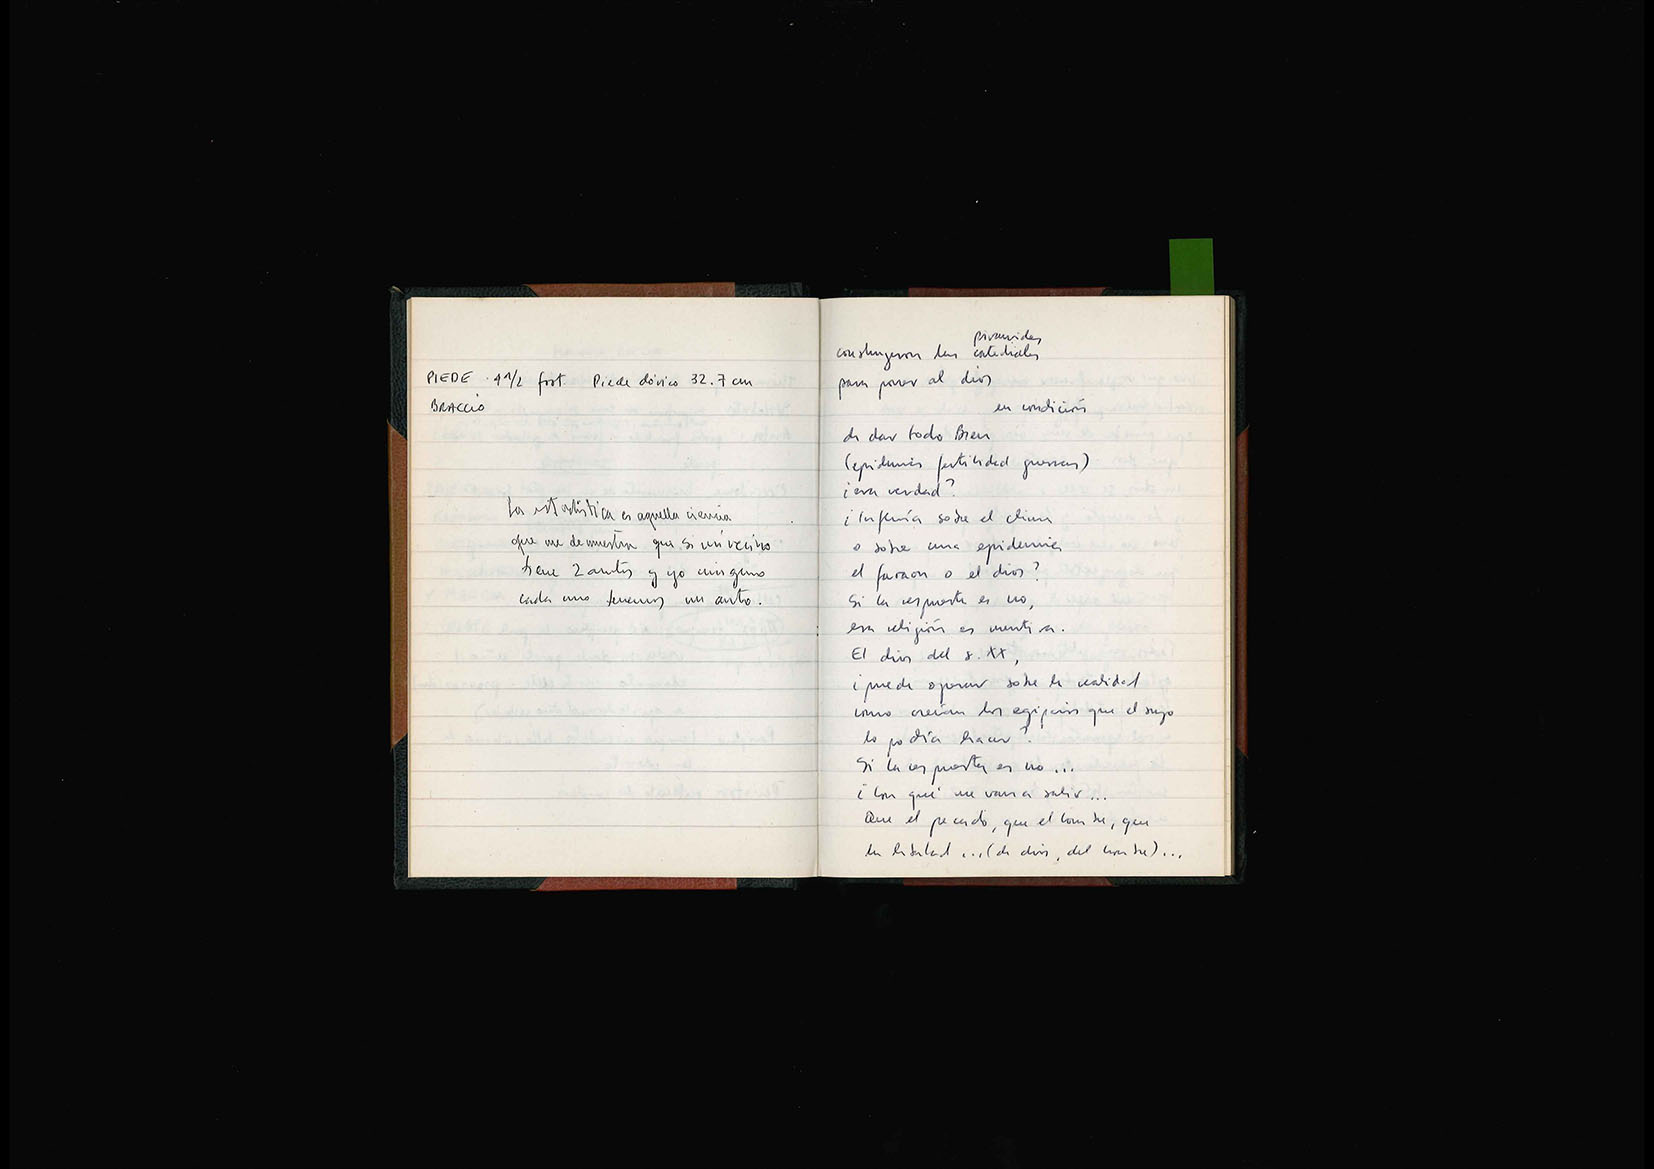 PIEDE · 4 1/2 foot Piede dórico 32.7 cm
BRACCIO
La estadística es aquella ciencia
que me demuestra que si mi vecino
tiene 2 autos y yo ninguno
cada uno tenemos un auto.
pirámides
construyeron las catedrales
para poner al dios
en condición
de dar todo Bien
(epidemias fertilidad guerras)
¿era verdad?
¿Influía sobre el clima
o sobre una epidemia
el faraon o el dios?
Si la respuesta es no,
esa religión es mentira.
El dios del s. XX,
¿puede operar sobre la realidad
como creían los egipcios que el suyo
lo podía hacer?
Si la respuesta es no...
¿Con qué me van a salir...
Que el pecado, que el hombre, que
la libertad ... (de dios, del hombre)...